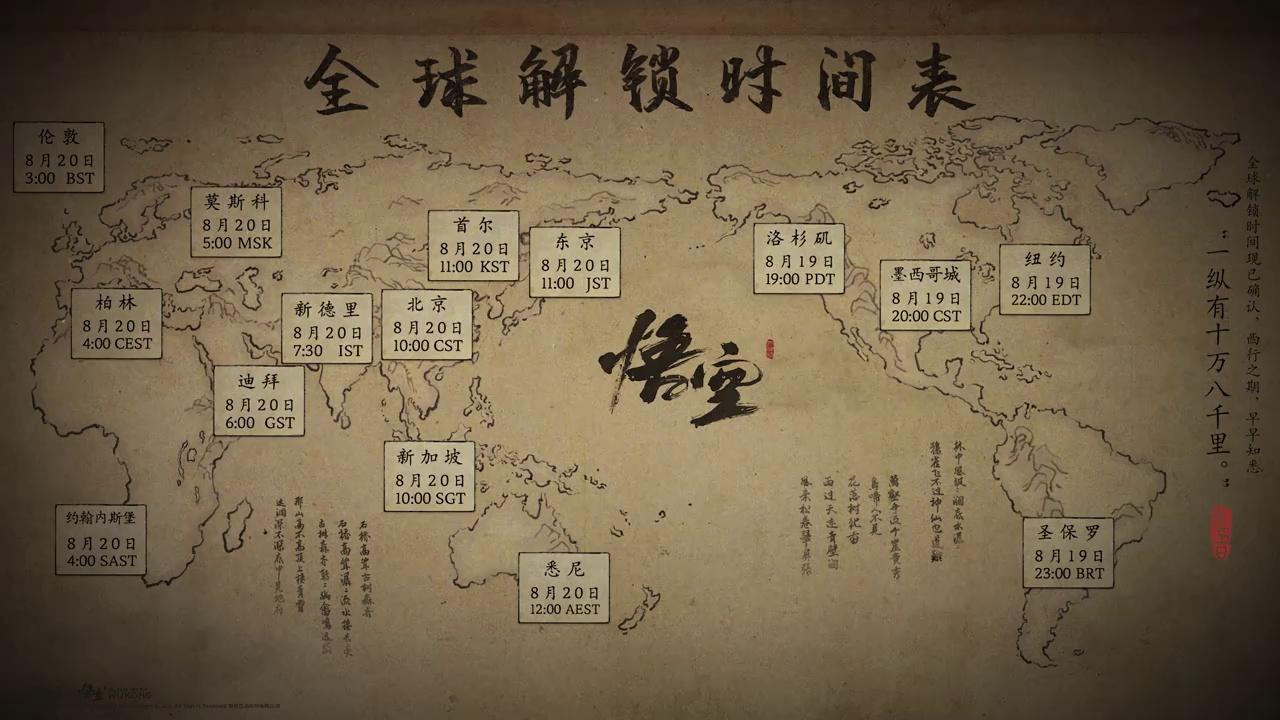 全球解锁时间表
伦敦
8月20日
3:00 BST
莫斯科
8月20日
5:00 MSK
首尔
8月20日
11:00 KST
东京
8月20日
11:00 JST
洛杉矶
8月19日
19:00 PDT
墨西哥城
8月19日
20:00 CST
纽约
8月19日
22:00 EDT
柏林
8月20日
4:00 CEST
新德里
8月20日
7:30 IST
北京
8月20日
10:00 CST
迪拜
8月20日
6:00 GST
新加坡
8月20日
10:00 SGT
约翰内斯堡
8月20日
4:00 SAST
悉尼
8月20日
12:00 AEST
圣保罗
8月19日
23:00 BRT
悟空
全球解锁时间现已确认、西行之期、早早知悉
：一纵有十万八千里。：
WUKONG